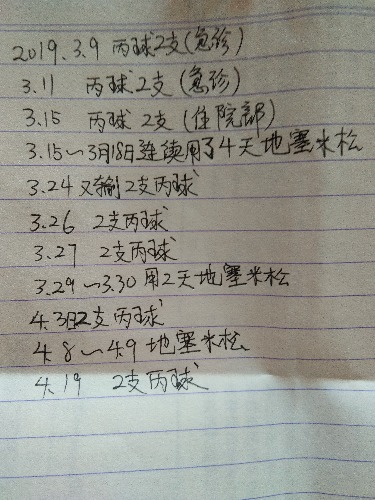 2019.3.9 丙球2支(急诊)
3.11 丙球2支(急诊)
3.15 丙球2支(住院部)
3.15～3月18日连续用了4天地塞米松
3.24又输2支丙球
3.26 2支丙球
3.27 2支丙球
3.29～3.30用2天地塞米松
4.3日2支丙球
4.8～4.9地塞米松
4.19 2支丙球